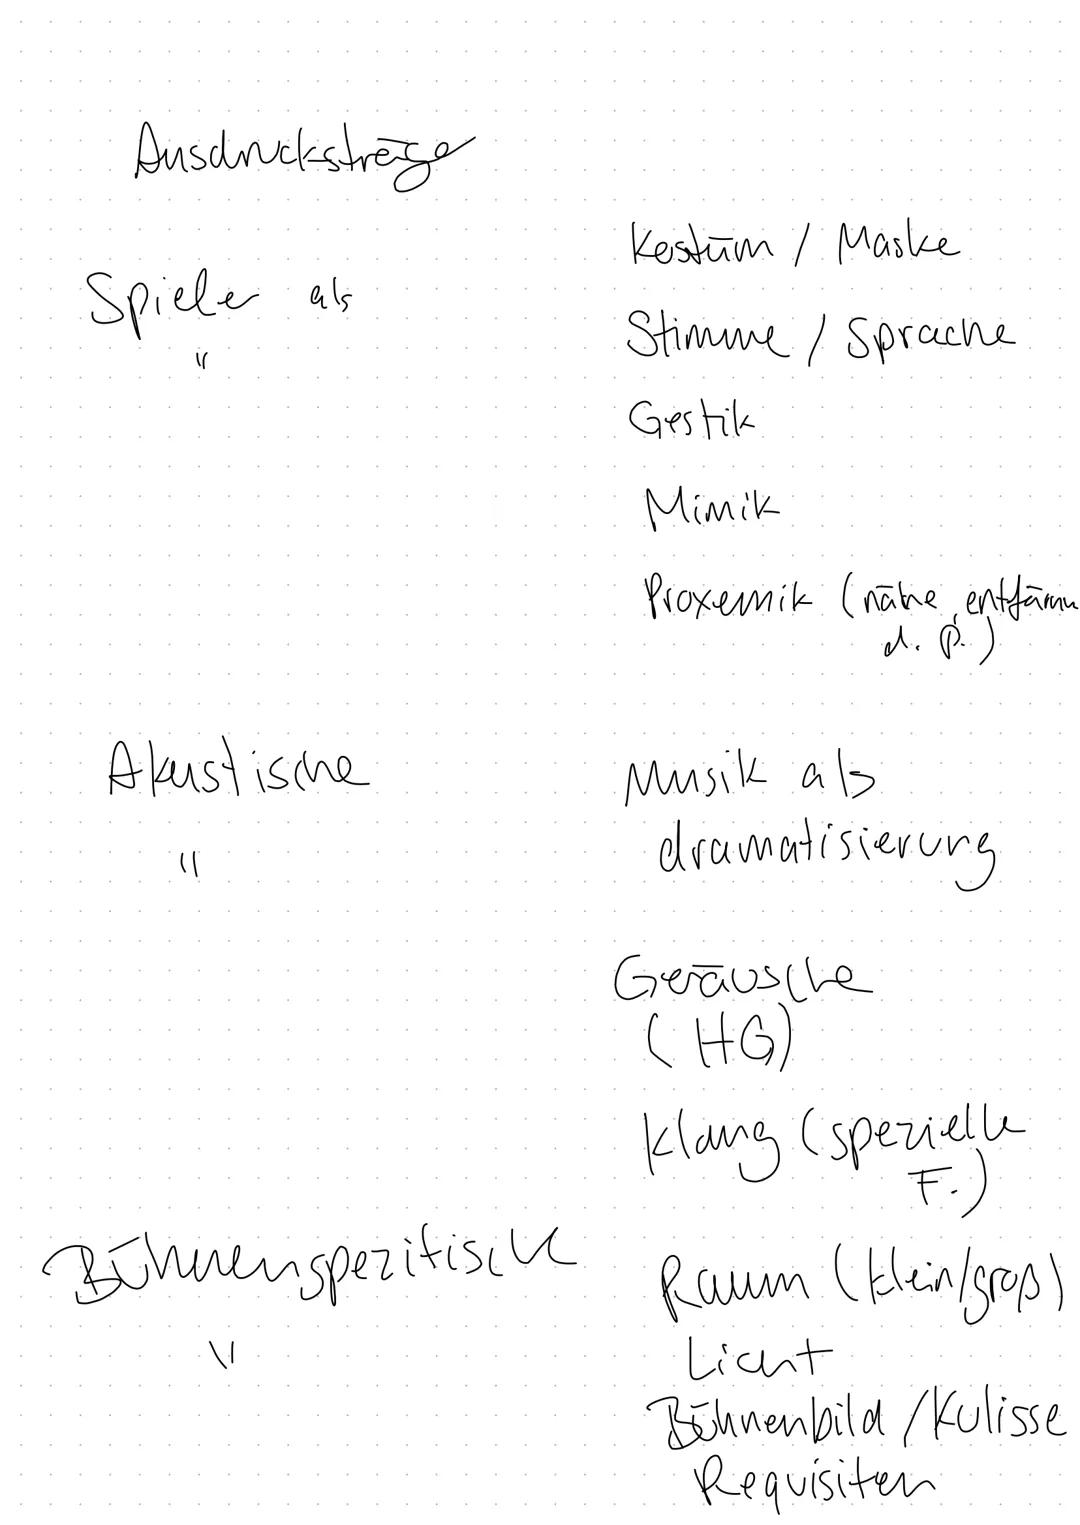 Ausdrucksträge
Kostüm / Maske
Spieler als
"
Stimme / Sprache
Gestik
Mimik
Proxemik (nähe, entfärnu
d. P.)
Akustische
"
Musik als
dramatisierung
Geräusche
(HG)
Klang (spezielle
F.)
Bühnenspezifische
"
Raum (klein/groß)
Licht
Bühnenbild / Kulisse
Requisiten